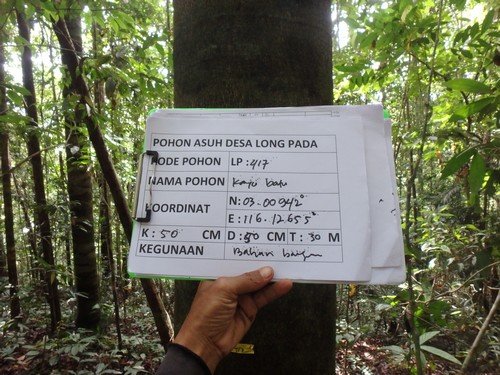 POHON ASUH DESA LONG PADA
KODE POHON LP : 417
NAMA POHON Kayu batu
KOORDINAT N: 03.00942°
E: 116.12655°
K : 50 CM D: 50 CM T : 30 M
KEGUNAAN Bahan bangun